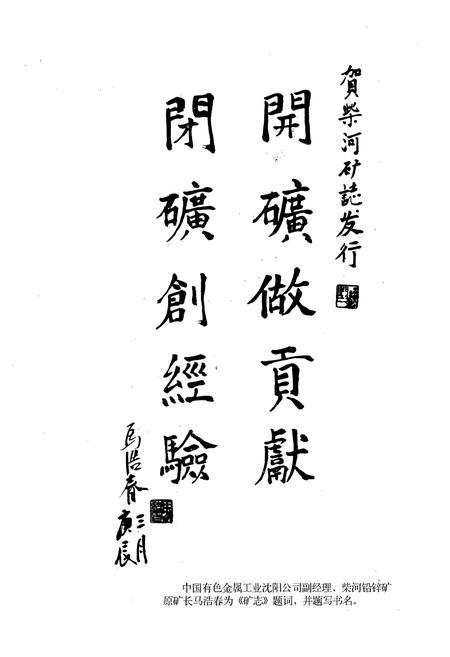 賀柴河矿誌发行
開礦做貢獻
閉礦創經驗
馬浩春
庚辰三月
中国有色金属工业沈阳公司副经理、柴河铅锌矿
原矿长马浩春为《矿志》题词，并题写书名。